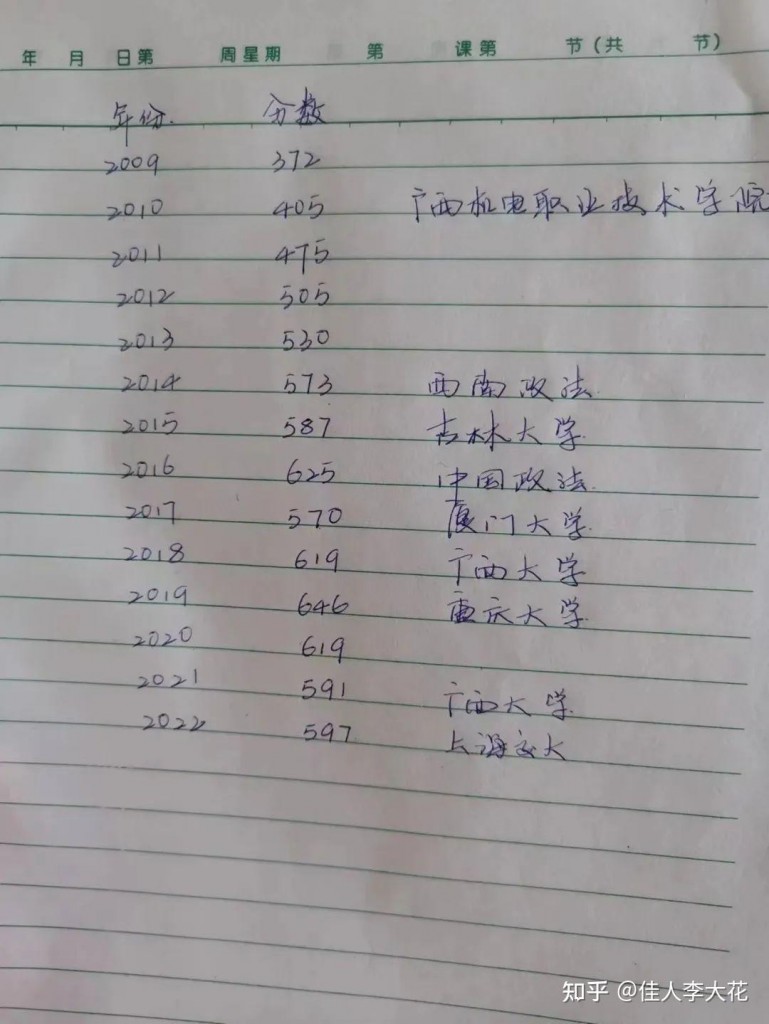 年 月 日第 周星期 第 课第 节(共 节)
年份. 分数
2009 372
2010 405 广西机电职业技术学院
2011 475
2012 505
2013 530
2014 573 西南政法.
2015 587 吉林大学.
2016 625 中国政法.
2017 570 厦门大学.
2018 619 广西大学
2019 646 重庆大学.
2020 619
2021 591 广西大学.
2022 597 上海交大
知乎 @佳人李大花